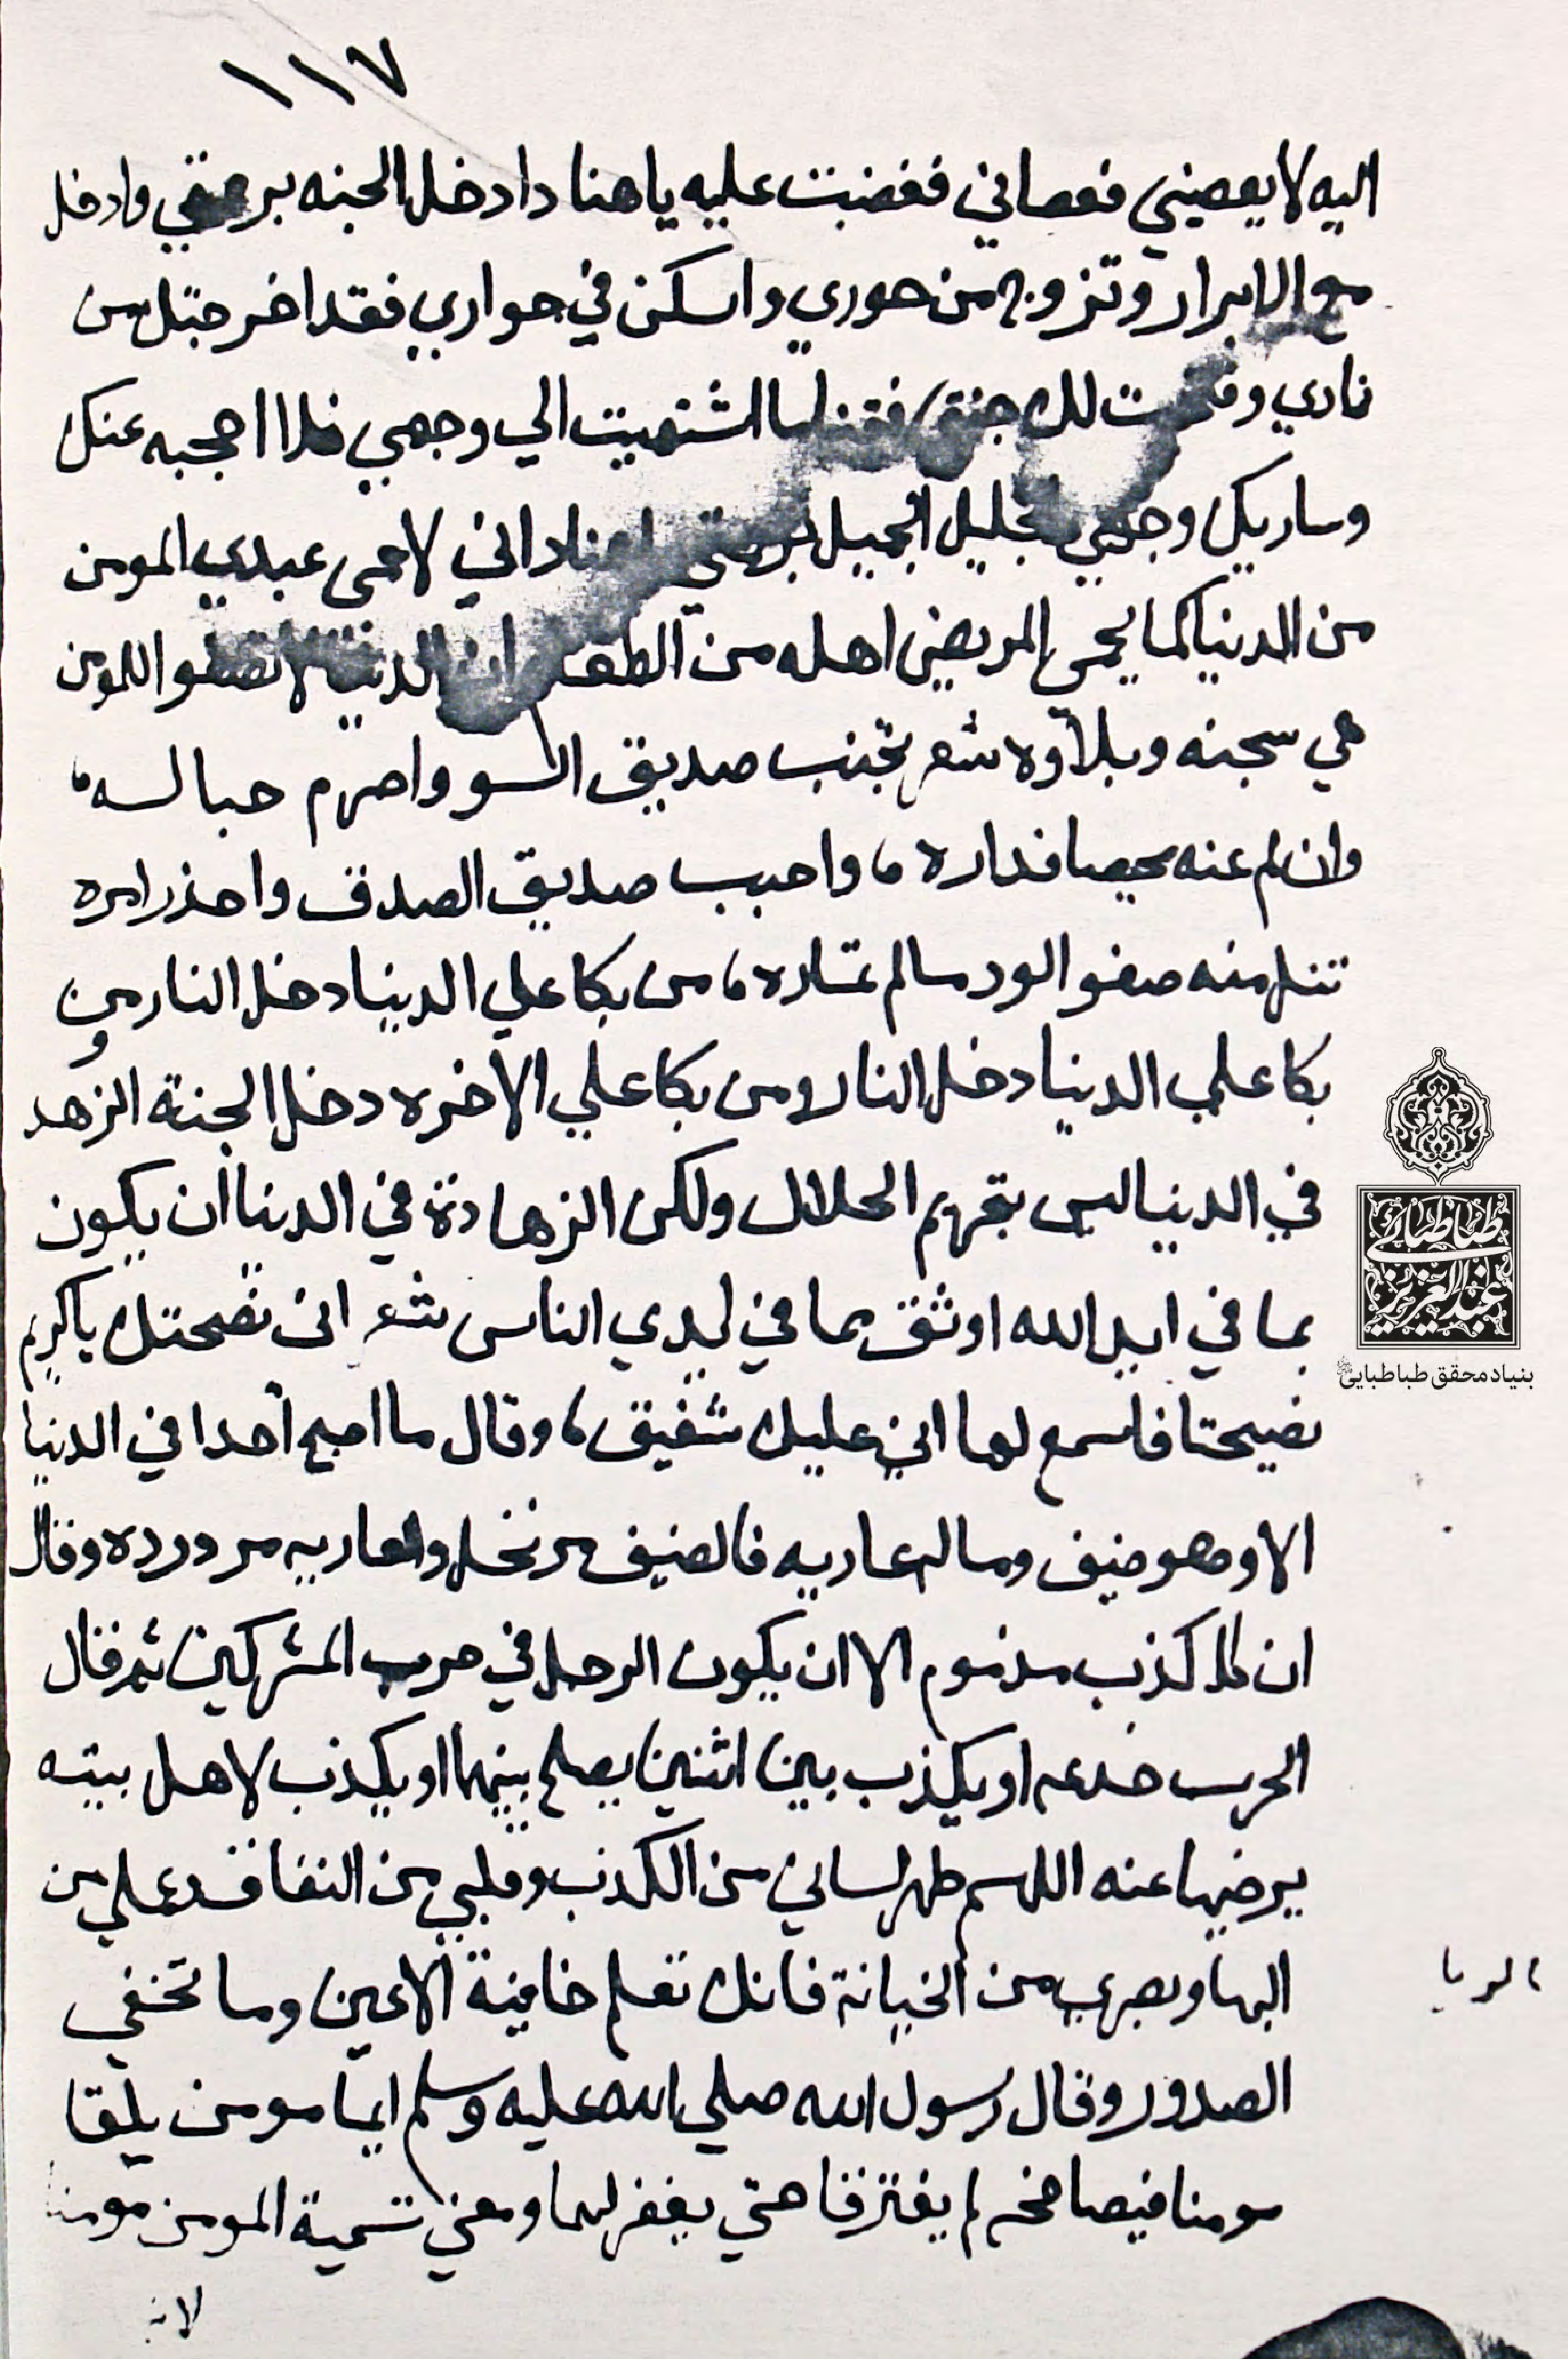 ١١٧
اليه لا يعصيني فعصاني فغضبت عليه يا هناد ادخل الجنه برحمتي وادخل
مع الابرار وتزوج من حوري واسكن في جواري فقد اخرجتك من
ناري وفتحت لك جنتي فقد اشتهيت الي وجهي فلا احجبه عنك
وساريك وجهي الجليل الجميل برحمتي هناد اني لاحمى عبدي المومن
من الدنيا كما يحمي المريض اهله من الطعام ان الدنيا لا تصفو اللمومن
هي سجنه وبلاوه شعر تجنب صديق السو واصرم حباله،
وان لم عنه محيصا فداره ، واحبب صديق الصدق واحذر امره
تنل منه صفو الود مالم تماره ، من بكا علي الدنيا دخل النار من
بكا علي الدنيا دخل النار ومن بكا علي الاخره دخل الجنة الزهد
في الدنيا ليس بتحريم الحلال ولكن الزهادة في الدنيا ان يكون
بما في ايد الله اوثق بما في ايدي الناس شعر انى نصحتك يا كريم
نصيحتا فاسمع لها اني عليك شفيق ، وقال ما اصبح أحدا في الدنيا
الا وهو ضيف وماله عاريه فالضيف مرتحل والعاريه مردوده وقال
ان كل كذب مذموم الا ان يكون الرجل في حرب المشركين ثم قال
الحرب خدعه او يكذب بين اثنين يصلح بينهما او يكذب لاهل بيته
يرضيها عنه اللهم طهر لساني من الكذب وقلبي من النفاق وعملي من
البها وبصري من الخيانة فانك تعلم خاينة الاعين وما تخفي
الريا
الصدور وقال رسول الله صلي الله عليه وسلم ايما مومن يلقا
مومنا فيصافحه لم يفترقا حتي يغفر لهما ومعني تسمية المومن مومنا
لانه
طباطبائي
عبدالعزيز
بنیاد محقق طباطبایی